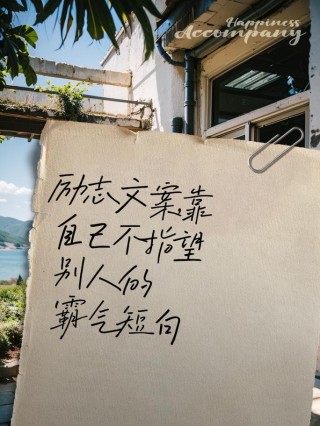 Happiness
Accompany
励志文案靠
自己不指望
别人的
霸气短句